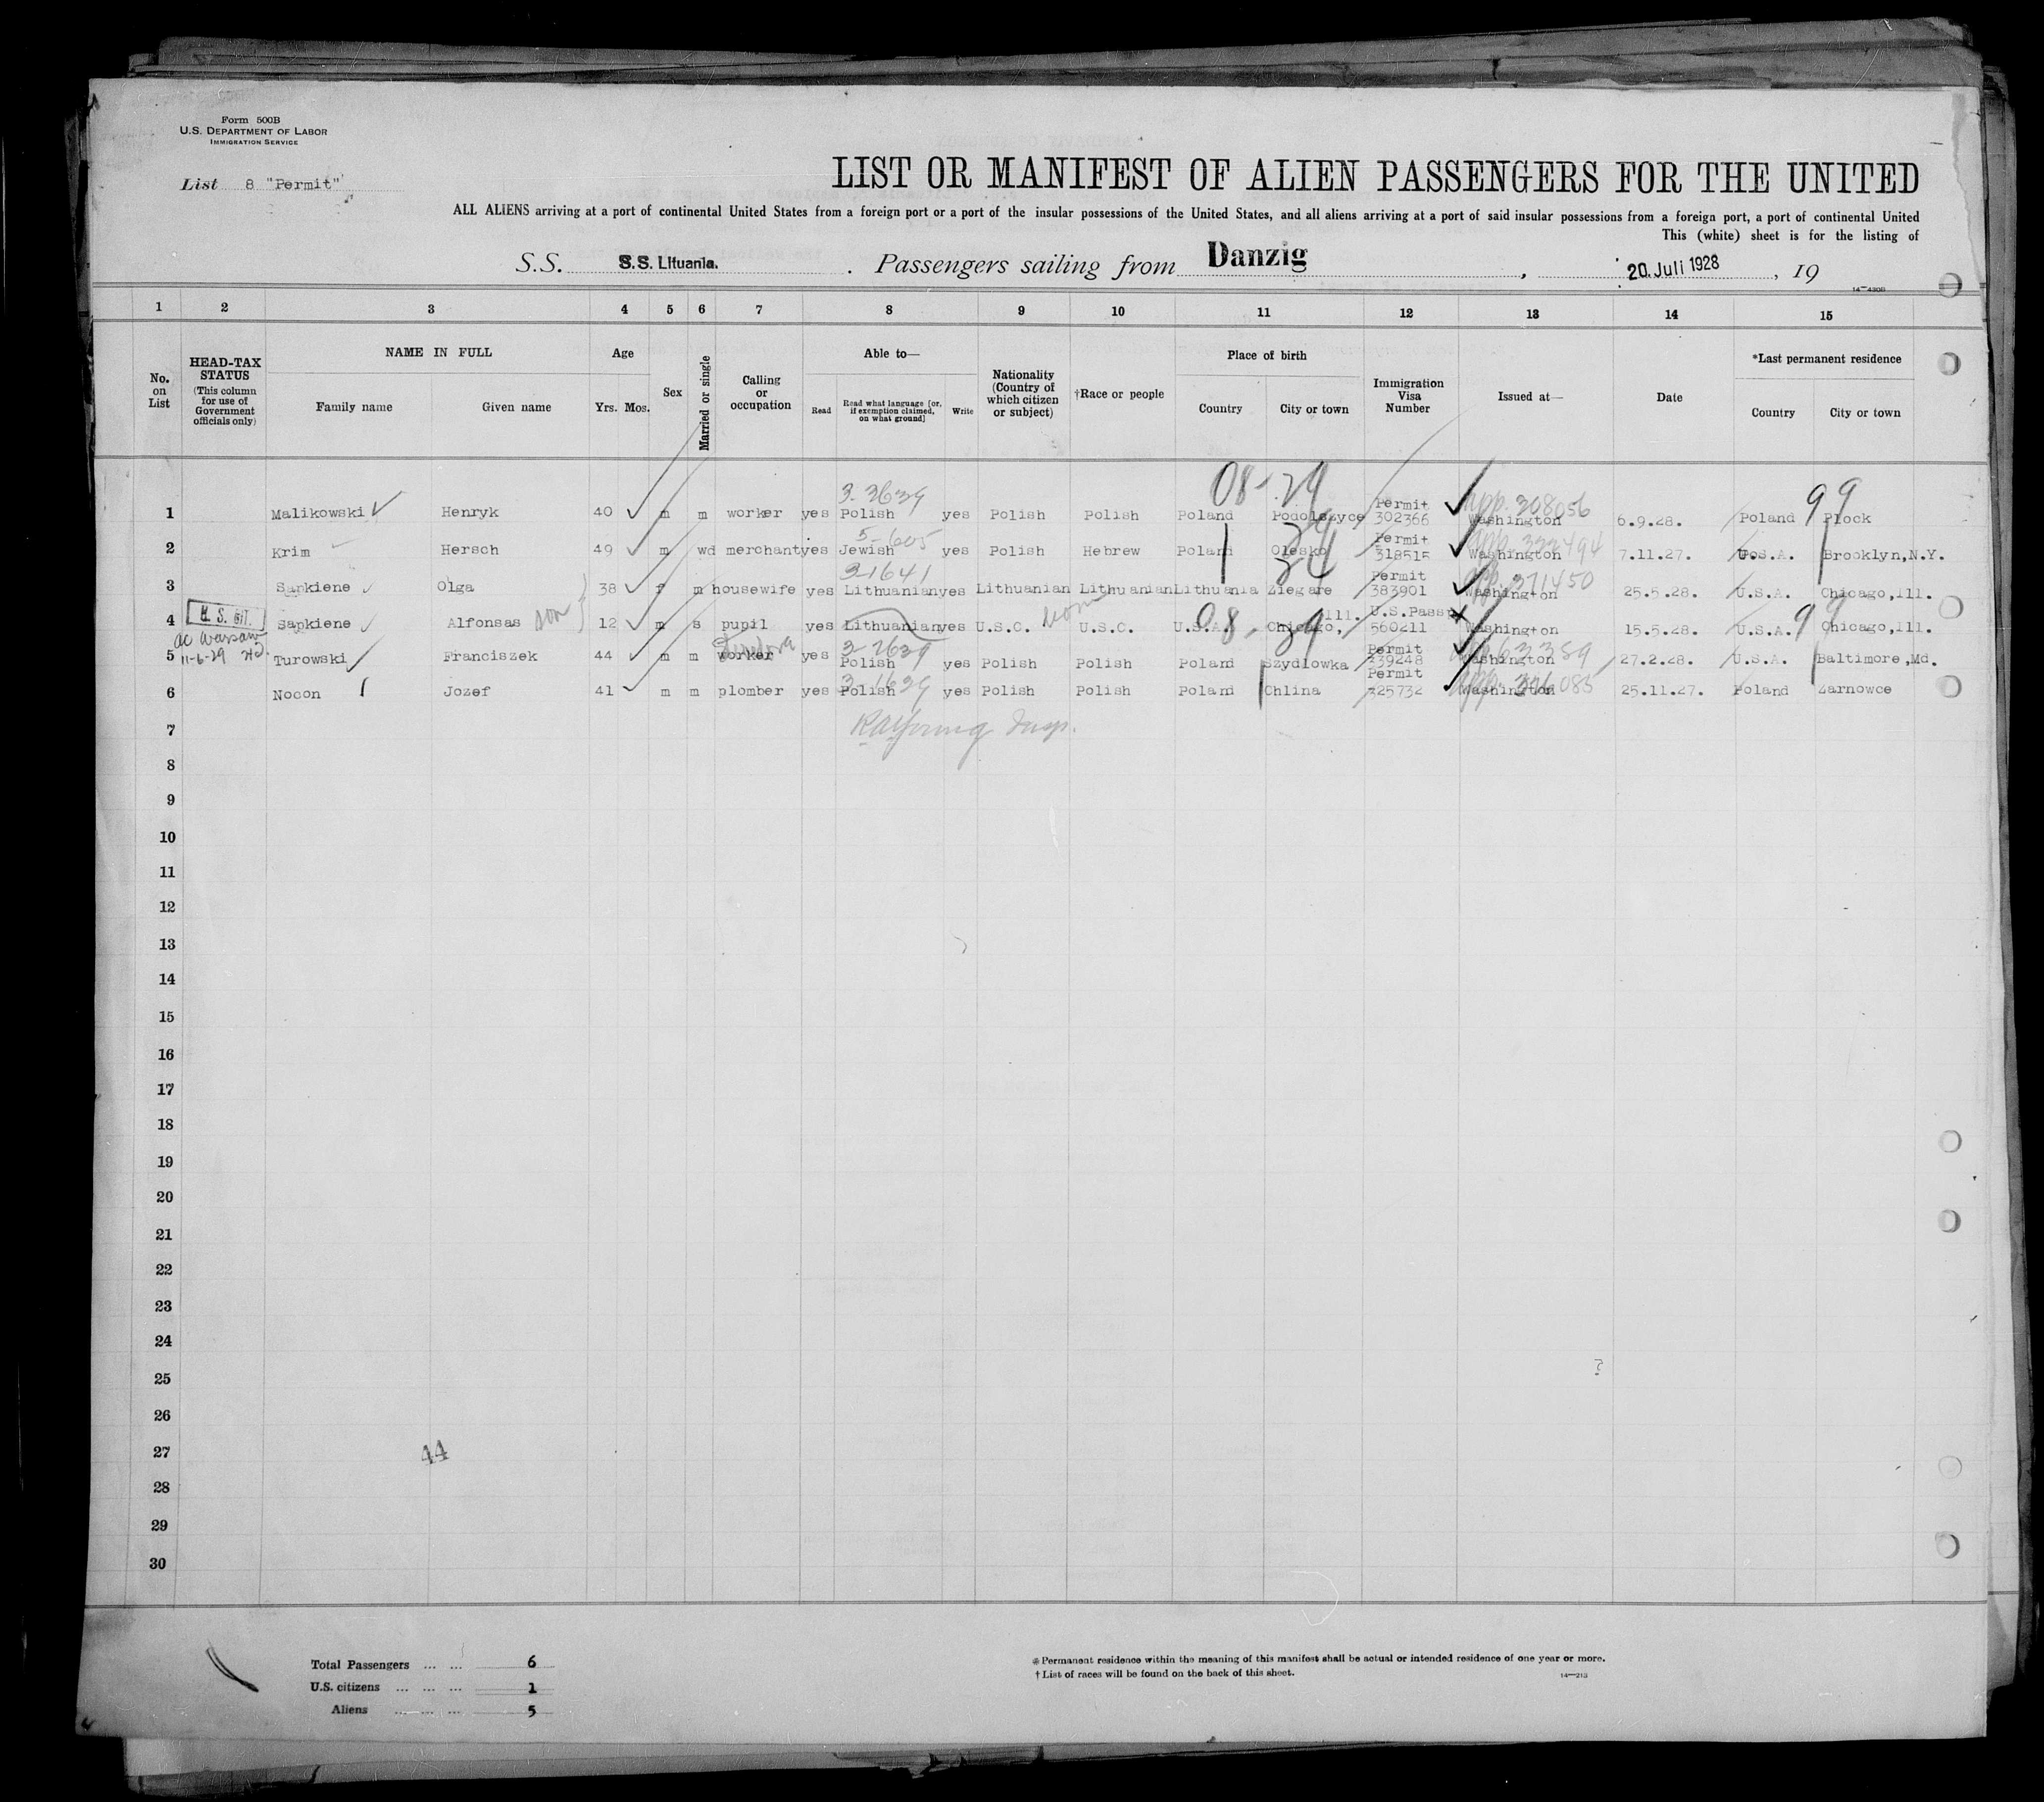 Form 500B
U.S. DEPARTMENT OF LABOR
IMMIGRATION SERVICE
List 8 "Permit"
LIST OR MANIFEST OF ALIEN PASSENGERS FOR THE UNITED
ALL ALIENS arriving at a port of continental United States from a foreign port or a port of the insular possessions of the United States, and all aliens arriving at a port of said insular possessions from a foreign port, a port of continental United
This (white) sheet is for the listing of
S.S. S.S. Lituania. Passengers sailing from Danzig, 20. Juli 1928, 19
14—430B
1 2 3 4 5 6 7 8 9 10 11 12 13 14 15
No. on List
HEAD-TAX STATUS (This column for use of Government officials only)
NAME IN FULL
Family name Given name
Age
Yrs. Mos.
Sex
Married or single
Calling or occupation
Able to—
Read Read what language [or, if exemption claimed, on what ground] Write
Nationality (Country of which citizen or subject)
†Race or people
Place of birth
Country City or town
Immigration Visa Number
Issued at—
Date
*Last permanent residence
Country City or town
08-29 99
3-2639 App. 308056
1 Malikowski Henryk 40 m m worker yes Polish yes Polish Polish Poland Podolszyce Permit 302366 Washington 6.9.28. Poland Plock
5-605 App. 333494
2 Krim Hersch 49 m wd merchant yes Jewish yes Polish Hebrew Poland Olesko Permit 318515 Washington 7.11.27. U.S.A. Brooklyn,N.Y.
3-1641 App. 371450
3 Sapkiene Olga 38 f m housewife yes Lithuanian yes Lithuanian Lithuanian Lithuania Ziegare Permit 383901 Washington 25.5.28. U.S.A. Chicago,Ill.
U.S. CIT.
4 Sapkiene Alfonsas son 12 m s pupil yes Lithuanian yes U.S.C. U.S.C. U.S.A. Chicago, Ill. U.S.Passp 560211 Washington 15.5.28. U.S.A. Chicago,Ill.
08-29 99
ac Warsaw
11-6-29
3-2639
5 Turowski Franciszek 44 m m worker yes Polish yes Polish Polish Poland Szydlowka Permit 339248 Washington 27.2.28. U.S.A. Baltimore,Md.
3-1639
6 Nocon Jozef 41 m m plomber yes Polish yes Polish Polish Poland Chlina Permit 325732 Washington 25.11.27. Poland Zarnowce
7
8
9
10
11
12
13
14
15
16
17
18
19
20
21
22
23
24
25
26
27
28
29
30
44
Total Passengers ... ... 6
U.S. citizens ... ... ... 1
Aliens ... ... ... 5
* Permanent residence within the meaning of this manifest shall be actual or intended residence of one year or more.
† List of races will be found on the back of this sheet.
14—213